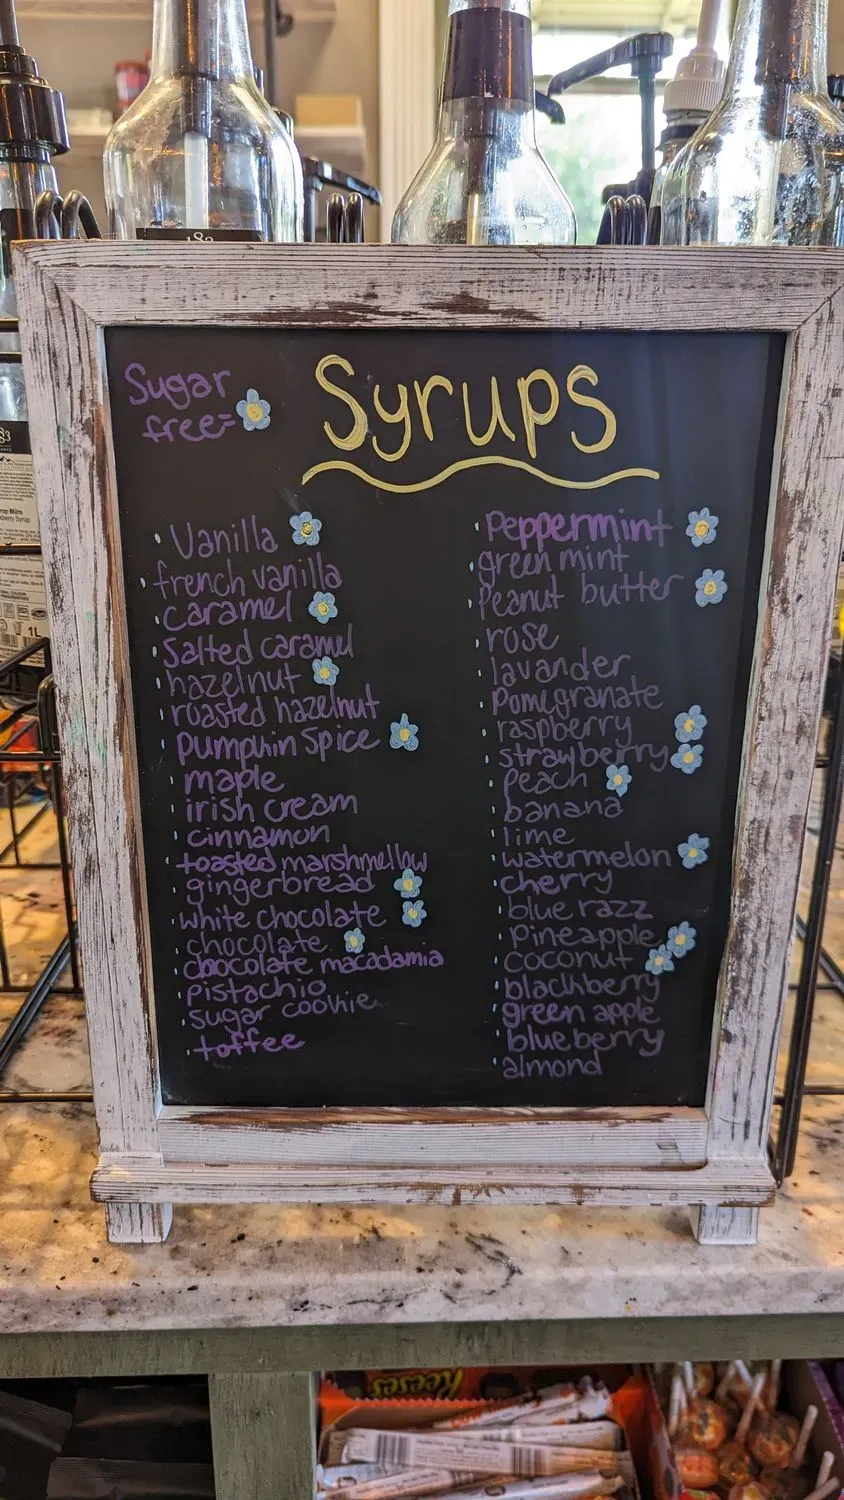 Sugar
free=
Syrups
Vanilla
french vanilla
caramel
Salted caramel
hazelnut
roasted hazelnut
Pumpkin Spice
maple
irish cream
cinnamon
toasted marshmellow
gingerbread
white chocolate
chocolate
chocolate macadamia
pistachio
sugar cookie
toffee
Peppermint
green mint
Peanut butter
rose
lavander
Pomegranate
raspberry
strawberry
peach
banana
lime
watermelon
cherry
blue razz
Pineapple
coconut
blackberry
green apple
blueberry
almond
1L
Reese's